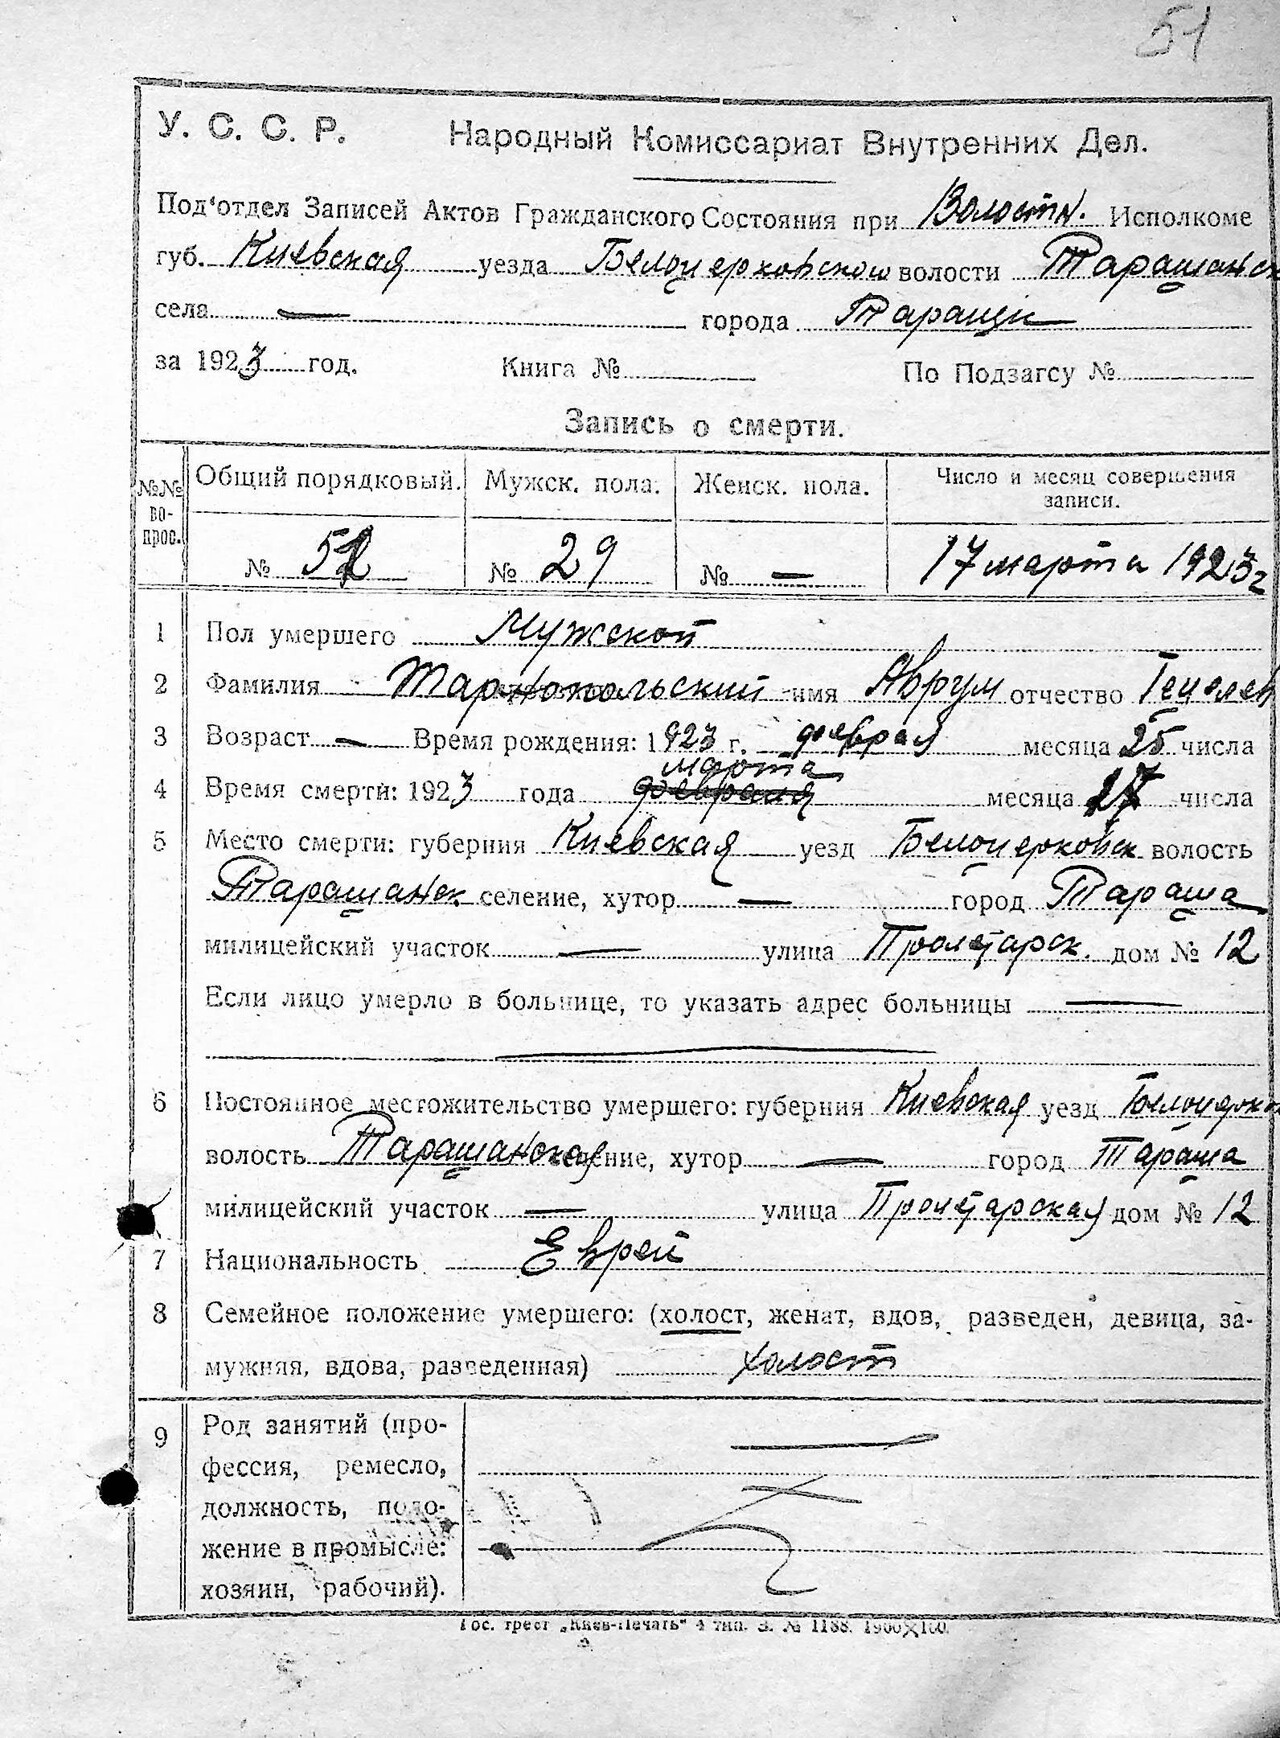 51
У. С. С. Р. Народный Комиссариат Внутренних Дел.
Под'отдел Записей Актов Гражданского Состояния при Волостн. Исполкоме
губ. Киевская уезда Белоцерковского волости Таращанск
села — города Таращи
за 1923 год. Книга № По Подзагсу №
Запись о смерти.
№№ во-прос. Общий порядковый. Мужск. пола. Женск. пола. Число и месяц совершения записи.
№ 52 № 29 № — 17 марта 1923 г
1 Пол умершего Мужской
2 Фамилия Тарнопольский имя Аврум отчество Гецелев
3 Возраст — Время рождения: 1923 г. февраля месяца 25 числа
марта
4 Время смерти: 1923 года февраля месяца 17 числа
5 Место смерти: губерния Киевская уезд Белоцерковск волость
Таращанск селение, хутор — город Тараща
милицейский участок — улица Пролетарск. дом № 12
Если лицо умерло в больнице, то указать адрес больницы —
6 Постоянное местожительство умершего: губерния Киевская уезд Белоцерков
волость Таращанская селение, хутор — город Тараща
милицейский участок — улица Пролетарская дом № 12
7 Национальность Еврей
8 Семейное положение умершего: (холост, женат, вдов, разведен, девица, за-
мужняя, вдова, разведенная) холост
9 Род занятий (про-
фессия, ремесло,
должность, поло-
жение в промысле:
хозяин, рабочий).
Гос. трест „Киев-Печать" 4 тип. З. № 1188. 1900×100.